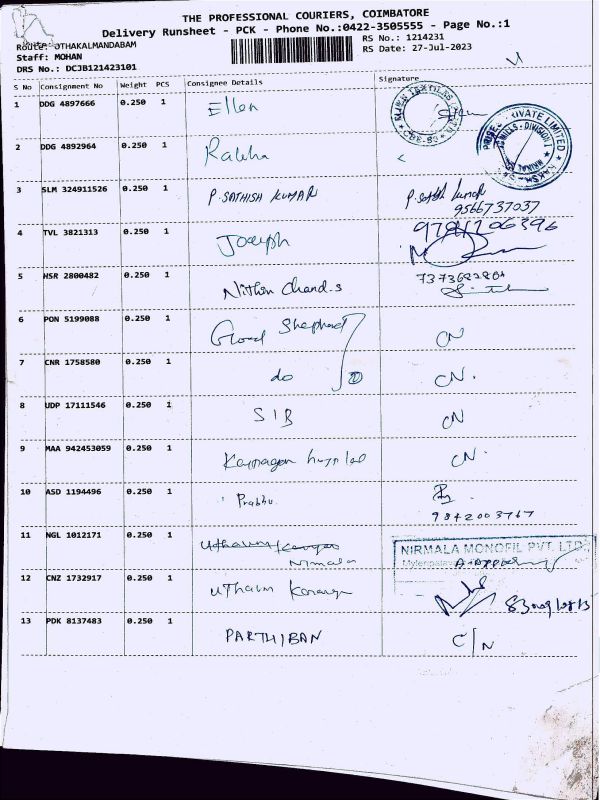 THE PROFESSIONAL COURIERS, COIMBATORE
Delivery Runsheet - PCK - Phone No.:0422-3505555 - Page No.:1
Route: OTHAKALMANDABAM
RS No.: 1214231
Staff: MOHAN
RS Date: 27-Jul-2023
DRS No.: DCJB121423101
S No Consignment No Weight PCS Consignee Details Signature
1 DDG 4897666 0.250 1 Ellen
2 DDG 4892964 0.250 1
3 SLM 324911526 0.250 1 P. SATHISH KUMAR P. Sathish Kumar
9566737037
4 TVL 3821313 0.250 1 Joseph
5 HSR 2800482 0.250 1 Nithin Chand.s
6 PON 5199088 0.250 1 Good Shepherd CN
7 CNR 1758580 0.250 1 do CN.
8 UDP 17111546 0.250 1 SIB CN
9 MAA 942453059 0.250 1 CN.
10 ASD 1194496 0.250 1 Prabhu
9842003767
11 NGL 1012171 0.250 1
Nirmala
NIRMALA MONOFIL PVT. LTD.,
12 CNZ 1732917 0.250 1
13 PDK 8137483 0.250 1 PARTHIBAN C/N